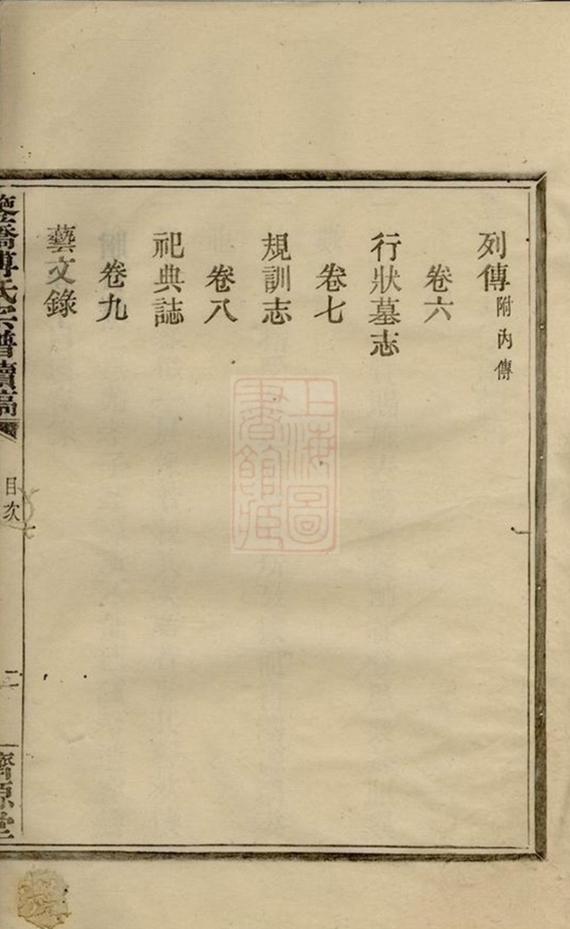 列傳 附內傳
卷六
行狀墓志
卷七
規訓志
卷八
祀典誌
卷九
藝文錄
傅氏宗譜續稿
目次
二
上海圖書館藏